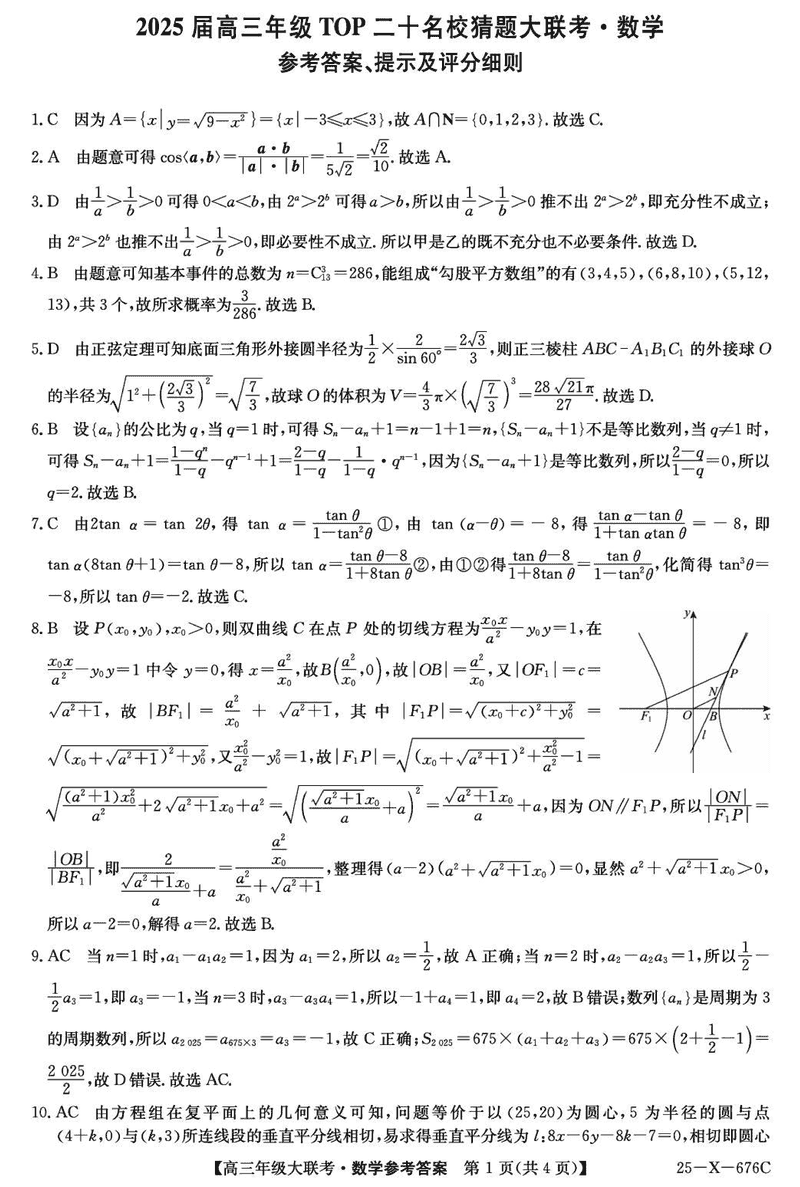 2025 届高三年级 TOP 二十名校猜题大联考·数学
参考答案、提示及评分细则
1. C 因为 A={x|y=√(9-x²)}={x|-3≤x≤3},故 A∩N={0,1,2,3}. 故选 C.
2. A 由题意可得 cos⟨a,b⟩=a·b/(|a|·|b|)=1/(5√2)=√2/10. 故选 A.
3. D 由 1/a>1/b>0 可得 0<a<b,由 2ᵃ>2ᵇ 可得 a>b,所以由 1/a>1/b>0 推不出 2ᵃ>2ᵇ,即充分性不成立;
由 2ᵃ>2ᵇ 也推不出 1/a>1/b>0,即必要性不成立. 所以甲是乙的既不充分也不必要条件. 故选 D.
4. B 由题意可知基本事件的总数为 n=C₁₃³=286,能组成“勾股平方数组”的有(3,4,5),(6,8,10),(5,12,
13),共 3 个,故所求概率为 3/286. 故选 B.
5. D 由正弦定理可知底面三角形外接圆半径为 1/2×2/sin 60°=2√3/3,则正三棱柱 ABC-A₁B₁C₁ 的外接球 O
的半径为√(1²+(2√3/3)²)=√(7/3),故球 O 的体积为 V=4/3π×(√(7/3))³=28√21π/27. 故选 D.
6. B 设{aₙ}的公比为 q,当 q=1 时,可得 Sₙ-aₙ+1=n-1+1=n,{Sₙ-aₙ+1}不是等比数列,当 q≠1 时,
可得 Sₙ-aₙ+1=(1-qⁿ)/(1-q)-qⁿ⁻¹+1=(2-q)/(1-q)-1/(1-q)·qⁿ⁻¹,因为{Sₙ-aₙ+1}是等比数列,所以(2-q)/(1-q)=0,所以
q=2. 故选 B.
7. C 由2tan α = tan 2θ, 得 tan α = tan θ/(1-tan²θ) ①, 由 tan (α-θ) = -8, 得 (tan α-tan θ)/(1+tan αtan θ) = -8, 即
tan α(8tan θ+1)=tan θ-8,所以 tan α=(tan θ-8)/(1+8tan θ)②,由①②得(tan θ-8)/(1+8tan θ)=tan θ/(1-tan²θ),化简得 tan³θ=
-8,所以 tan θ=-2. 故选 C.
8. B 设 P(x₀,y₀),x₀>0,则双曲线 C 在点 P 处的切线方程为 x₀x/a²-y₀y=1,在
x₀x/a²-y₀y=1 中令 y=0,得 x=a²/x₀,故B(a²/x₀,0),故|OB|=a²/x₀,又|OF₁|=c=
√(a²+1), 故 |BF₁| = a²/x₀ + √(a²+1), 其中 |F₁P|=√((x₀+c)²+y₀²) =
√((x₀+√(a²+1))²+y₀²),又x₀²/a²-y₀²=1,故|F₁P|=√((x₀+√(a²+1))²+x₀²/a²-1)=
√((a²+1)x₀²/a²+2√(a²+1)x₀+a²)=√((√(a²+1)x₀/a+a)²)=√(a²+1)x₀/a+a,因为 ON∥F₁P,所以|ON|/|F₁P|=
|OB|/|BF₁|,即 2/(√(a²+1)x₀/a+a)=(a²/x₀)/(a²/x₀+√(a²+1)),整理得(a-2)(a²+√(a²+1)x₀)=0,显然 a²+√(a²+1)x₀>0,
所以 a-2=0,解得 a=2. 故选 B.
y
P
N
F₁
O
B
x
l
9. AC 当 n=1 时,a₁-a₁a₂=1,因为 a₁=2,所以 a₂=1/2,故 A 正确;当 n=2 时,a₂-a₂a₃=1,所以 1/2-
1/2a₃=1,即 a₃=-1,当 n=3 时,a₃-a₃a₄=1,所以-1+a₄=1,即 a₄=2,故 B 错误;数列{aₙ}是周期为 3
的周期数列,所以 a₂₀₂₅=a₆₇₅ₓ₃=a₃=-1,故 C 正确;S₂₀₂₅=675×(a₁+a₂+a₃)=675×(2+1/2-1)=
2 025/2,故 D 错误. 故选 AC.
10. AC 由方程组在复平面上的几何意义可知,问题等价于以(25,20)为圆心,5 为半径的圆与点
(4+k,0)与(k,3)所连线段的垂直平分线相切,易求得垂直平分线为 l:8x-6y-8k-7=0,相切即圆心
【高三年级大联考·数学参考答案 第 1 页(共 4 页)】 25-X-676C